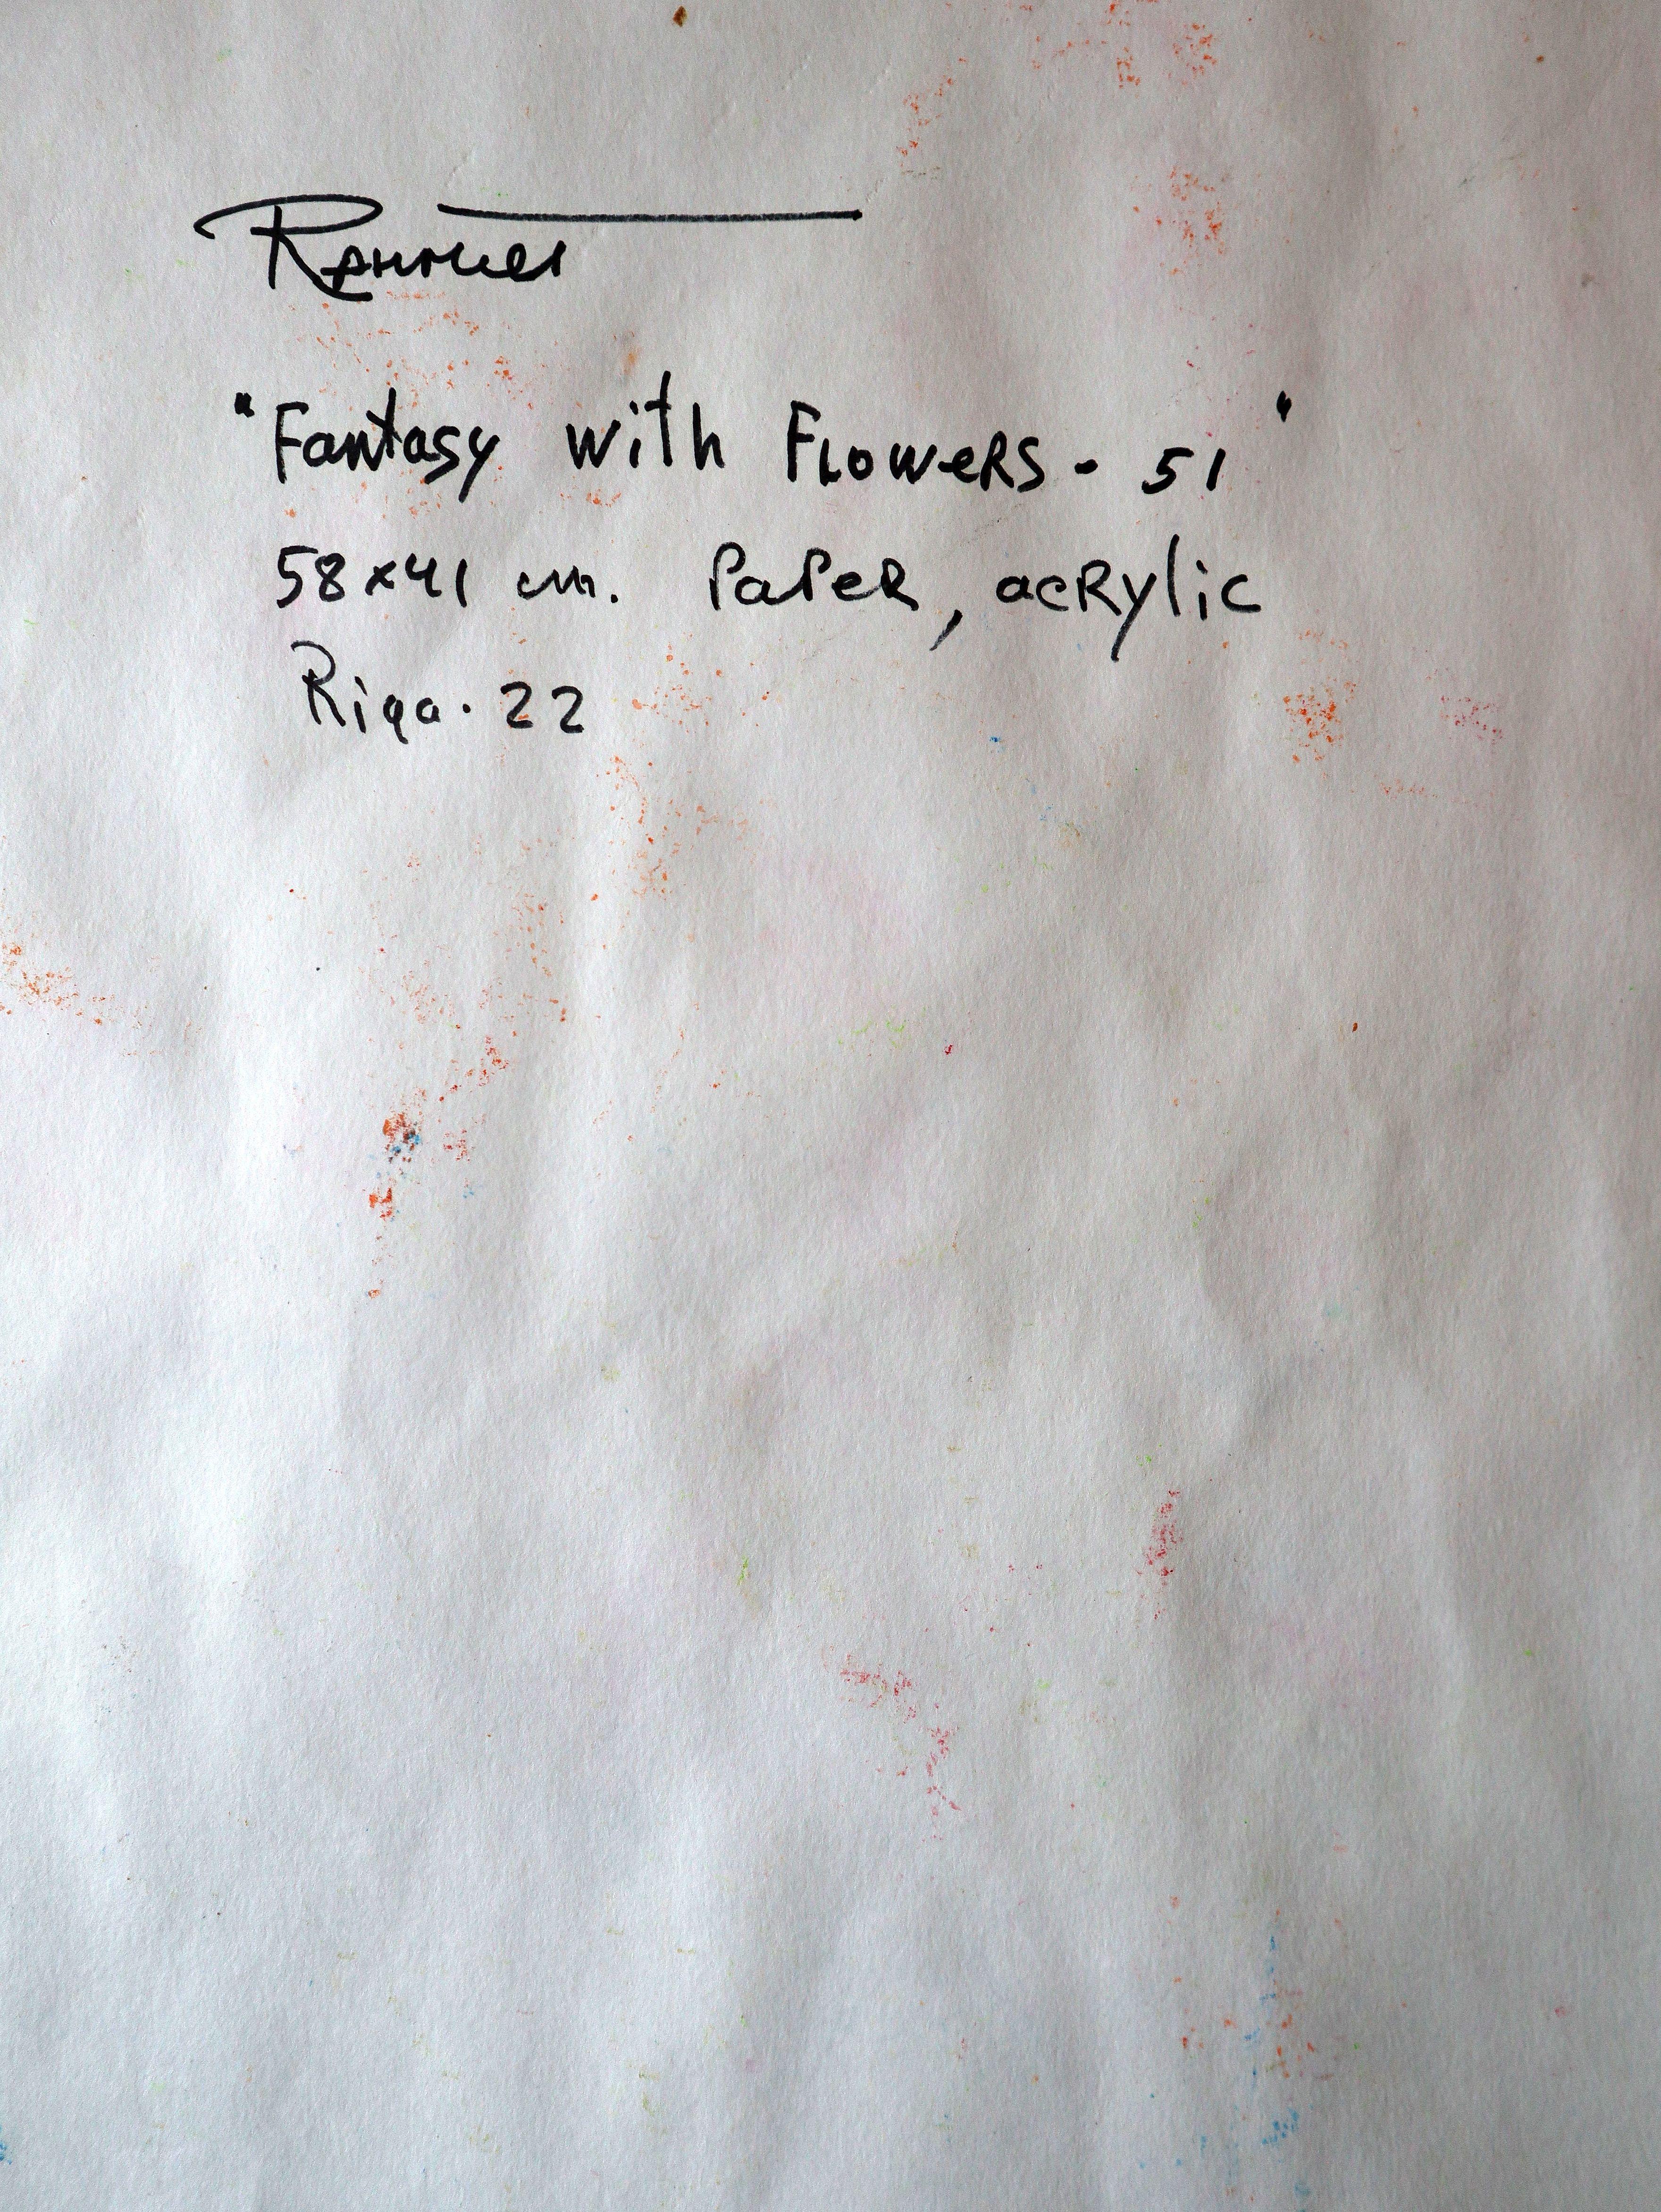 "Fantasy with Flowers - 51"
58x41 cm. Paper, acrylic
Riga. 22